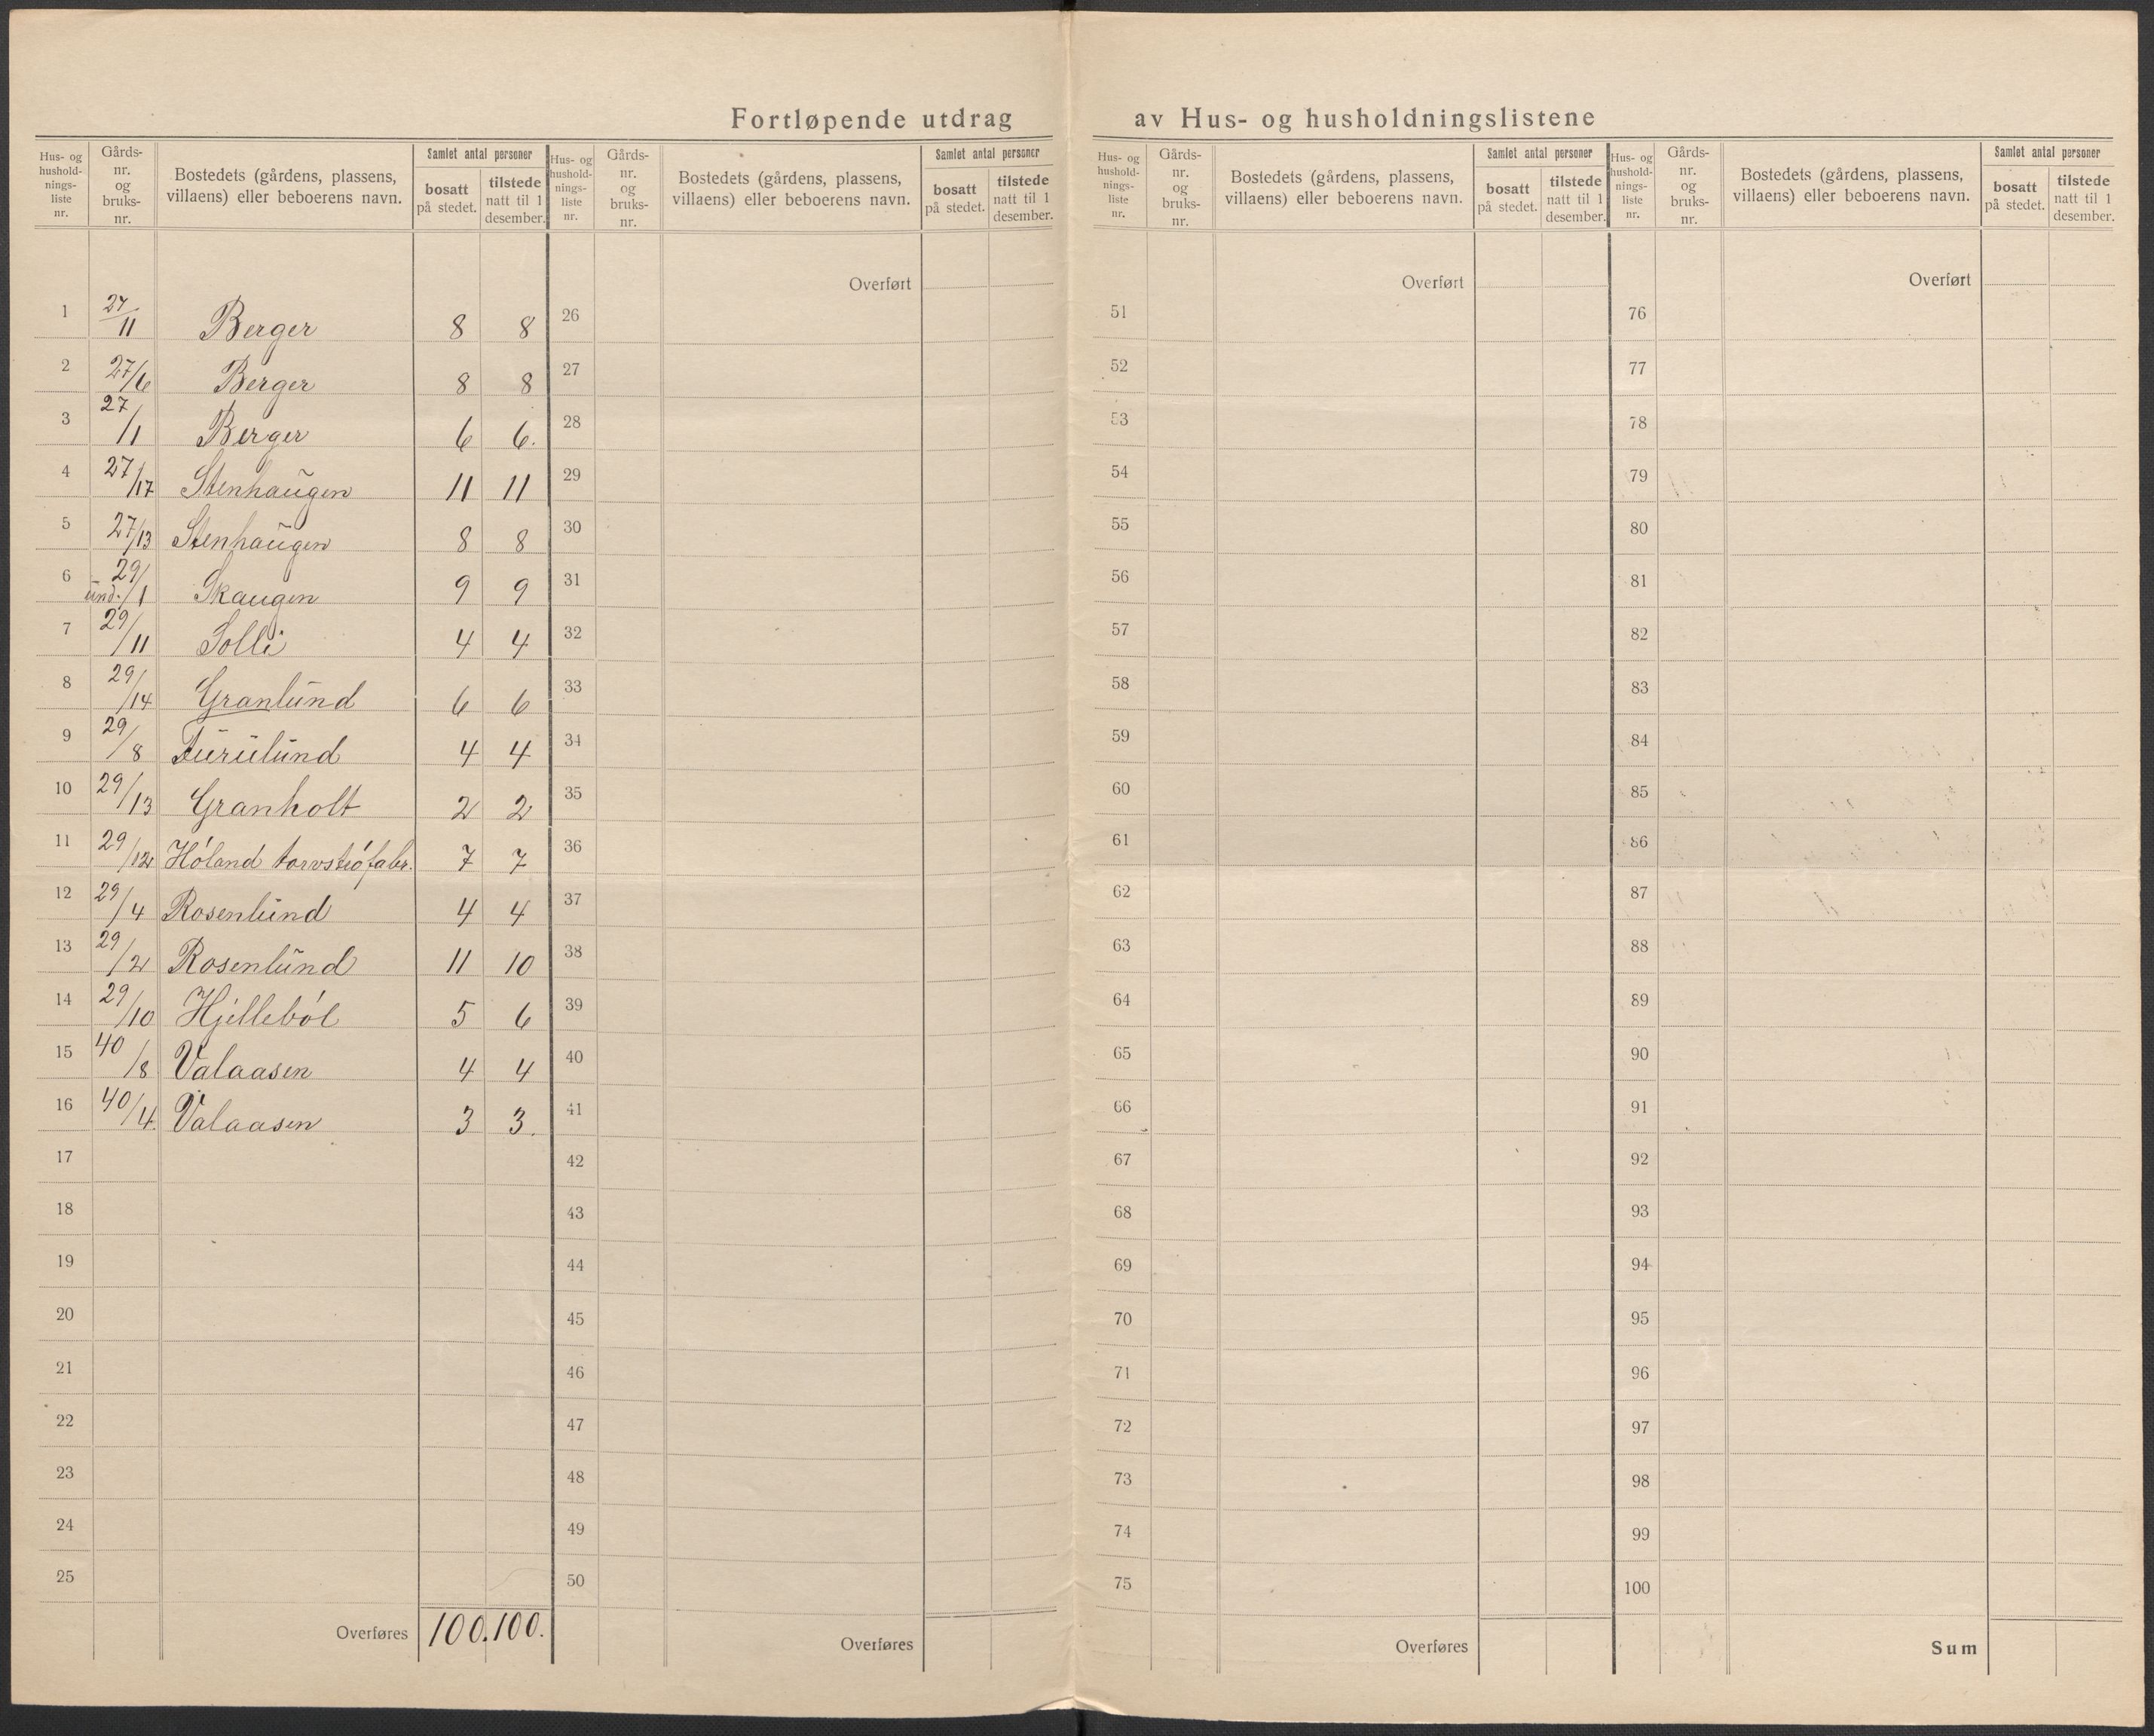 Fortløpende utdrag av Hus- og husholdningslistene
Hus- og hushold- nings- liste nr. | Gårds- nr. og bruks- nr. | Bostedets (gårdens, plassens, villaens) eller beboerens navn. | Samlet antal personer | bosatt på stedet. | tilstede natt til 1 desember.
1 27/11 Berger 8 8
2 27/6 Berger 8 8
3 27/1 Berger 6 6.
4 27/17 Stenhaugen 11 11
5 27/13 Stenhaugen 8 8
6 29/ und. /1 Skaugen 9 9
7 29/11 Solli 4 4
8 29/14 Granlund 6 6
9 29/8 Furulund 4 4
10 29/13 Granholt 2 2
11 29/12 Høland torvstrøfabr. 7 7
12 29/4 Rosenlund 4 4
13 29/2 Rosenlund 11 10
14 29/10 Hjellebøl 5 6
15 40/8 Valaasen 4 4
16 40/4. Valaasen 3 3.
17
18
19
20
21
22
23
24
25
Overføres 100. 100.
Hus- og hushold- nings- liste nr. | Gårds- nr. og bruks- nr. | Bostedets (gårdens, plassens, villaens) eller beboerens navn. | Samlet antal personer | bosatt på stedet. | tilstede natt til 1 desember.
Overført
26
27
28
29
30
31
32
33
34
35
36
37
38
39
40
41
42
43
44
45
46
47
48
49
50
Overføres
Hus- og hushold- nings- liste nr. | Gårds- nr. og bruks- nr. | Bostedets (gårdens, plassens, villaens) eller beboerens navn. | Samlet antal personer | bosatt på stedet. | tilstede natt til 1 desember.
Overført
51
52
53
54
55
56
57
58
59
60
61
62
63
64
65
66
67
68
69
70
71
72
73
74
75
Overføres
Hus- og hushold- nings- liste nr. | Gårds- nr. og bruks- nr. | Bostedets (gårdens, plassens, villaens) eller beboerens navn. | Samlet antal personer | bosatt på stedet. | tilstede natt til 1 desember.
Overført
76
77
78
79
80
81
82
83
84
85
86
87
88
89
90
91
92
93
94
95
96
97
98
99
100
Sum